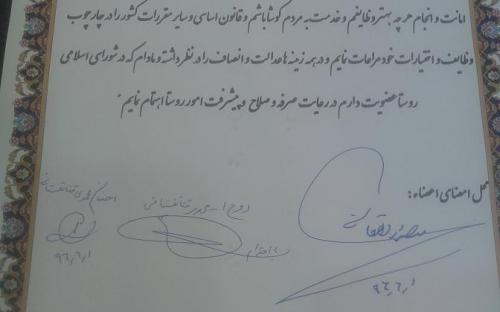 امانت و انجام هر چه بهتر وظایفم و خدمت به مردم کوشا باشم و قانون اساسی و سایر مقررات کشور را در چارچوب
وظایف و اختیارات خود مراعات نمایم و در همه زمینه ها عدالت و انصاف را در نظر داشته و مادام که در شورای اسلامی
روستا عضویت دارم در رعایت صرفه و صلاح و پیشرفت امور روستا اهتمام نمایم.
محل امضای اعضاء:
۹۶٫۶٫۱
۹۶٫۶٫۱